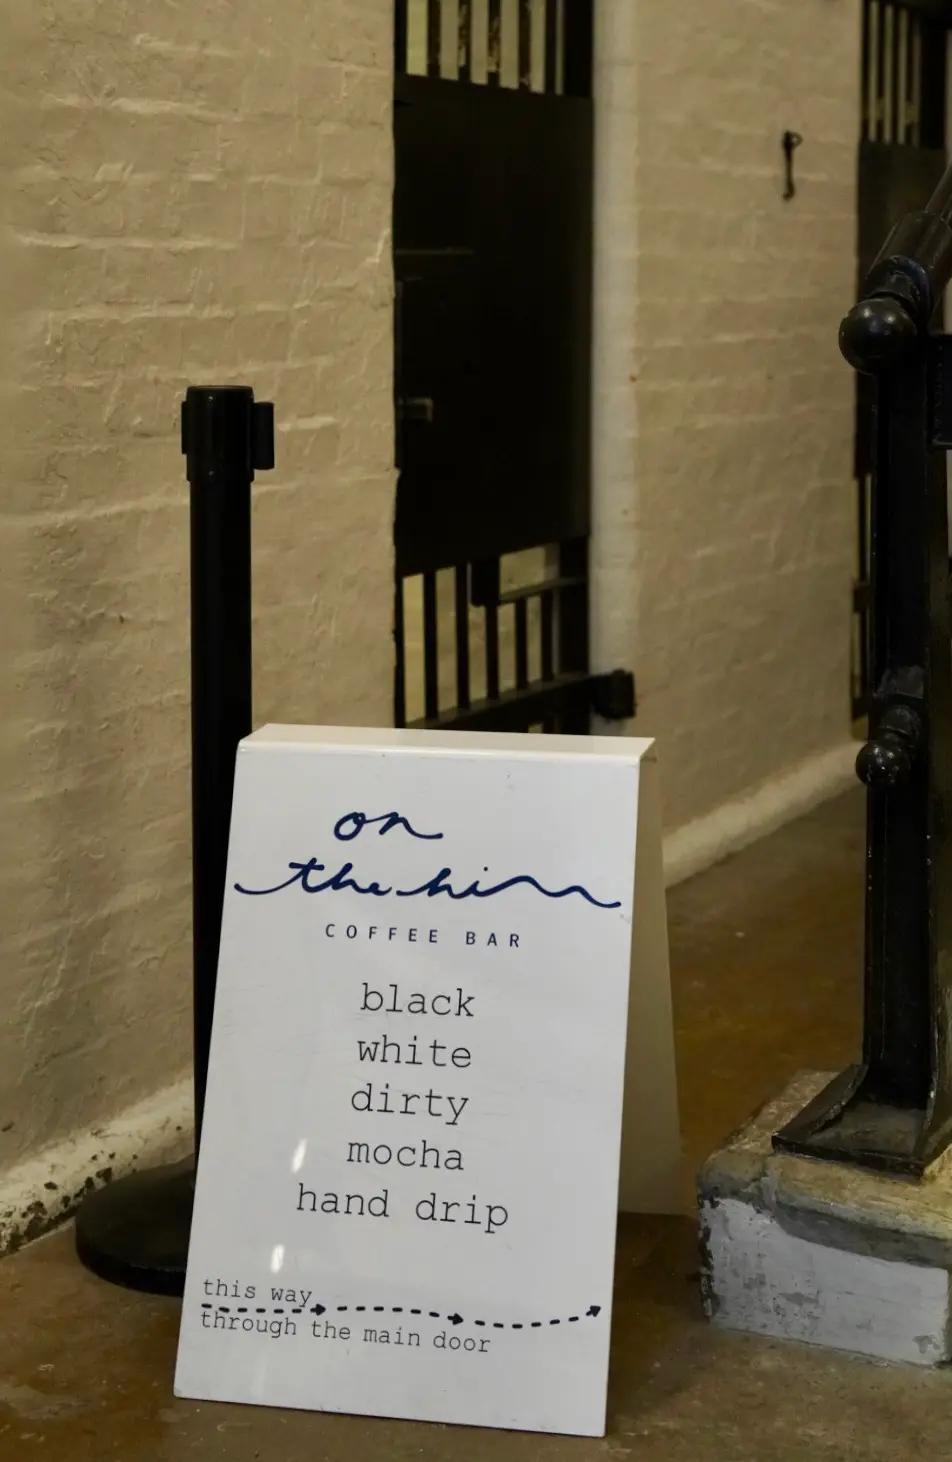 on
the hill
COFFEE BAR
black
white
dirty
mocha
hand drip
this way
through the main door